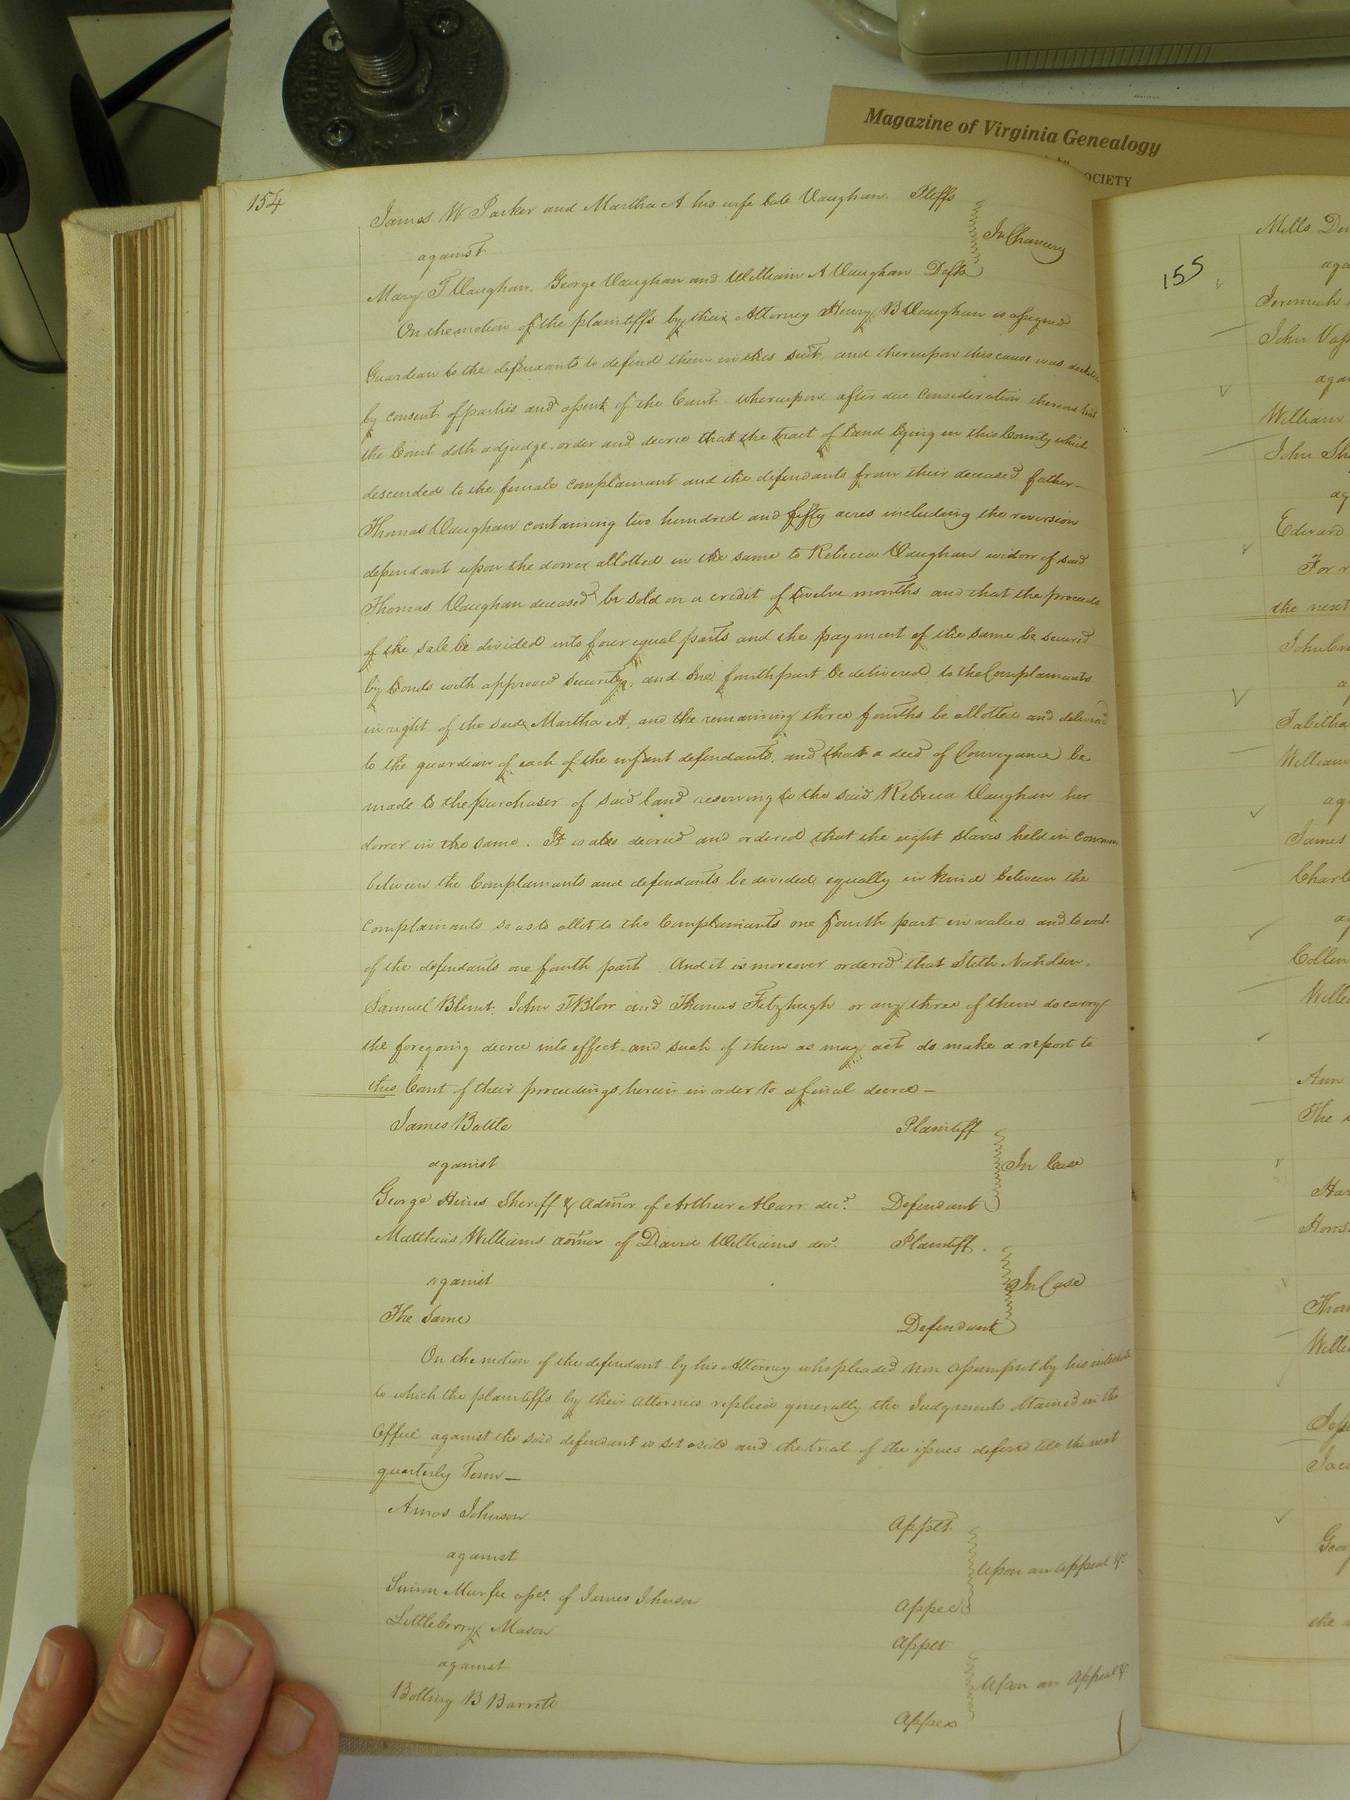 Magazine of Virginia Genealogy
OCIETY
154
James W Parker and Martha A his wife late Vaughan. Pltffs
against In Chancery
Mary T Vaughan, George Vaughan and William A Vaughan Defts
On the motion of the plaintiffs by their Attorney Henry B Vaughan is assigned
Guardian to the defendants to defend them in this suit, and thereupon this cause was
by consent of parties and assent of the Court whereupon after due consideration thereon had
the Court doth adjudge, order and decree that the tract of land lying in this County which
descended to the female complainant and the defendants from their deceased father
Thomas Vaughan containing two hundred and fifty acres including the reversion
dependant upon the dower allotted in the same to Rebecca Vaughan widow of said
Thomas Vaughan deceased be sold on a credit of twelve months and that the proceeds
of the sale be divided into four equal parts and the payment of the same be secured
by bonds with approved security, and one fourth part be delivered to the Complainants
in right of the said Martha A. and the remaining three fourths be allotted and delivered
to the guardian of each of the infant defendants, and that a deed of Conveyance be
made to the purchaser of said land reserving to the said Rebecca Vaughan her
dower in the same. It is also decreed and ordered that the eight slaves held in common
between the Complainants and defendants be divided equally in kind between the
Complainants so as to allot to the Complainants one fourth part in value and to each
of the defendants one fourth part. And it is moreover ordered that Stith Nicholson,
Samuel Blunt, John T Blow and Thomas Fitzhugh or any three of them do carry
the foregoing decree into effect and such of them as may act do make a report to
this Court of their proceedings herein in order to a final decree —
James Battle Plaintiff
against In Case
George Hines Sheriff & admor of Arthur A Carr decd. Defendant
Matthew Williams admor of David Williams decd. Plaintiff.
against In Case
The Same Defendant
On the motion of the defendant by his Attorney who pleaded non assumpsit by his intestate
to which the plaintiffs by their attornies replied generally the Judgments obtained in the
Office against the said defendant is set aside and the trial of the issues deferred till the next
quarterly Term —
Amos Johnson Applt.
against Upon an appeal &c.
Simon Murfee assee. of James Johnson Appee
Littleberry Mason Applt
against Upon an appeal &c
Bolling B Barrett Appee
155
Mills
aga
Jeremiah
John
aga
William
John Sh
ag
Edward
For
the next
Tabitha
William
ag
James
Charl
Collin
Ann
The
Har
Thom
Wille
Geor
the